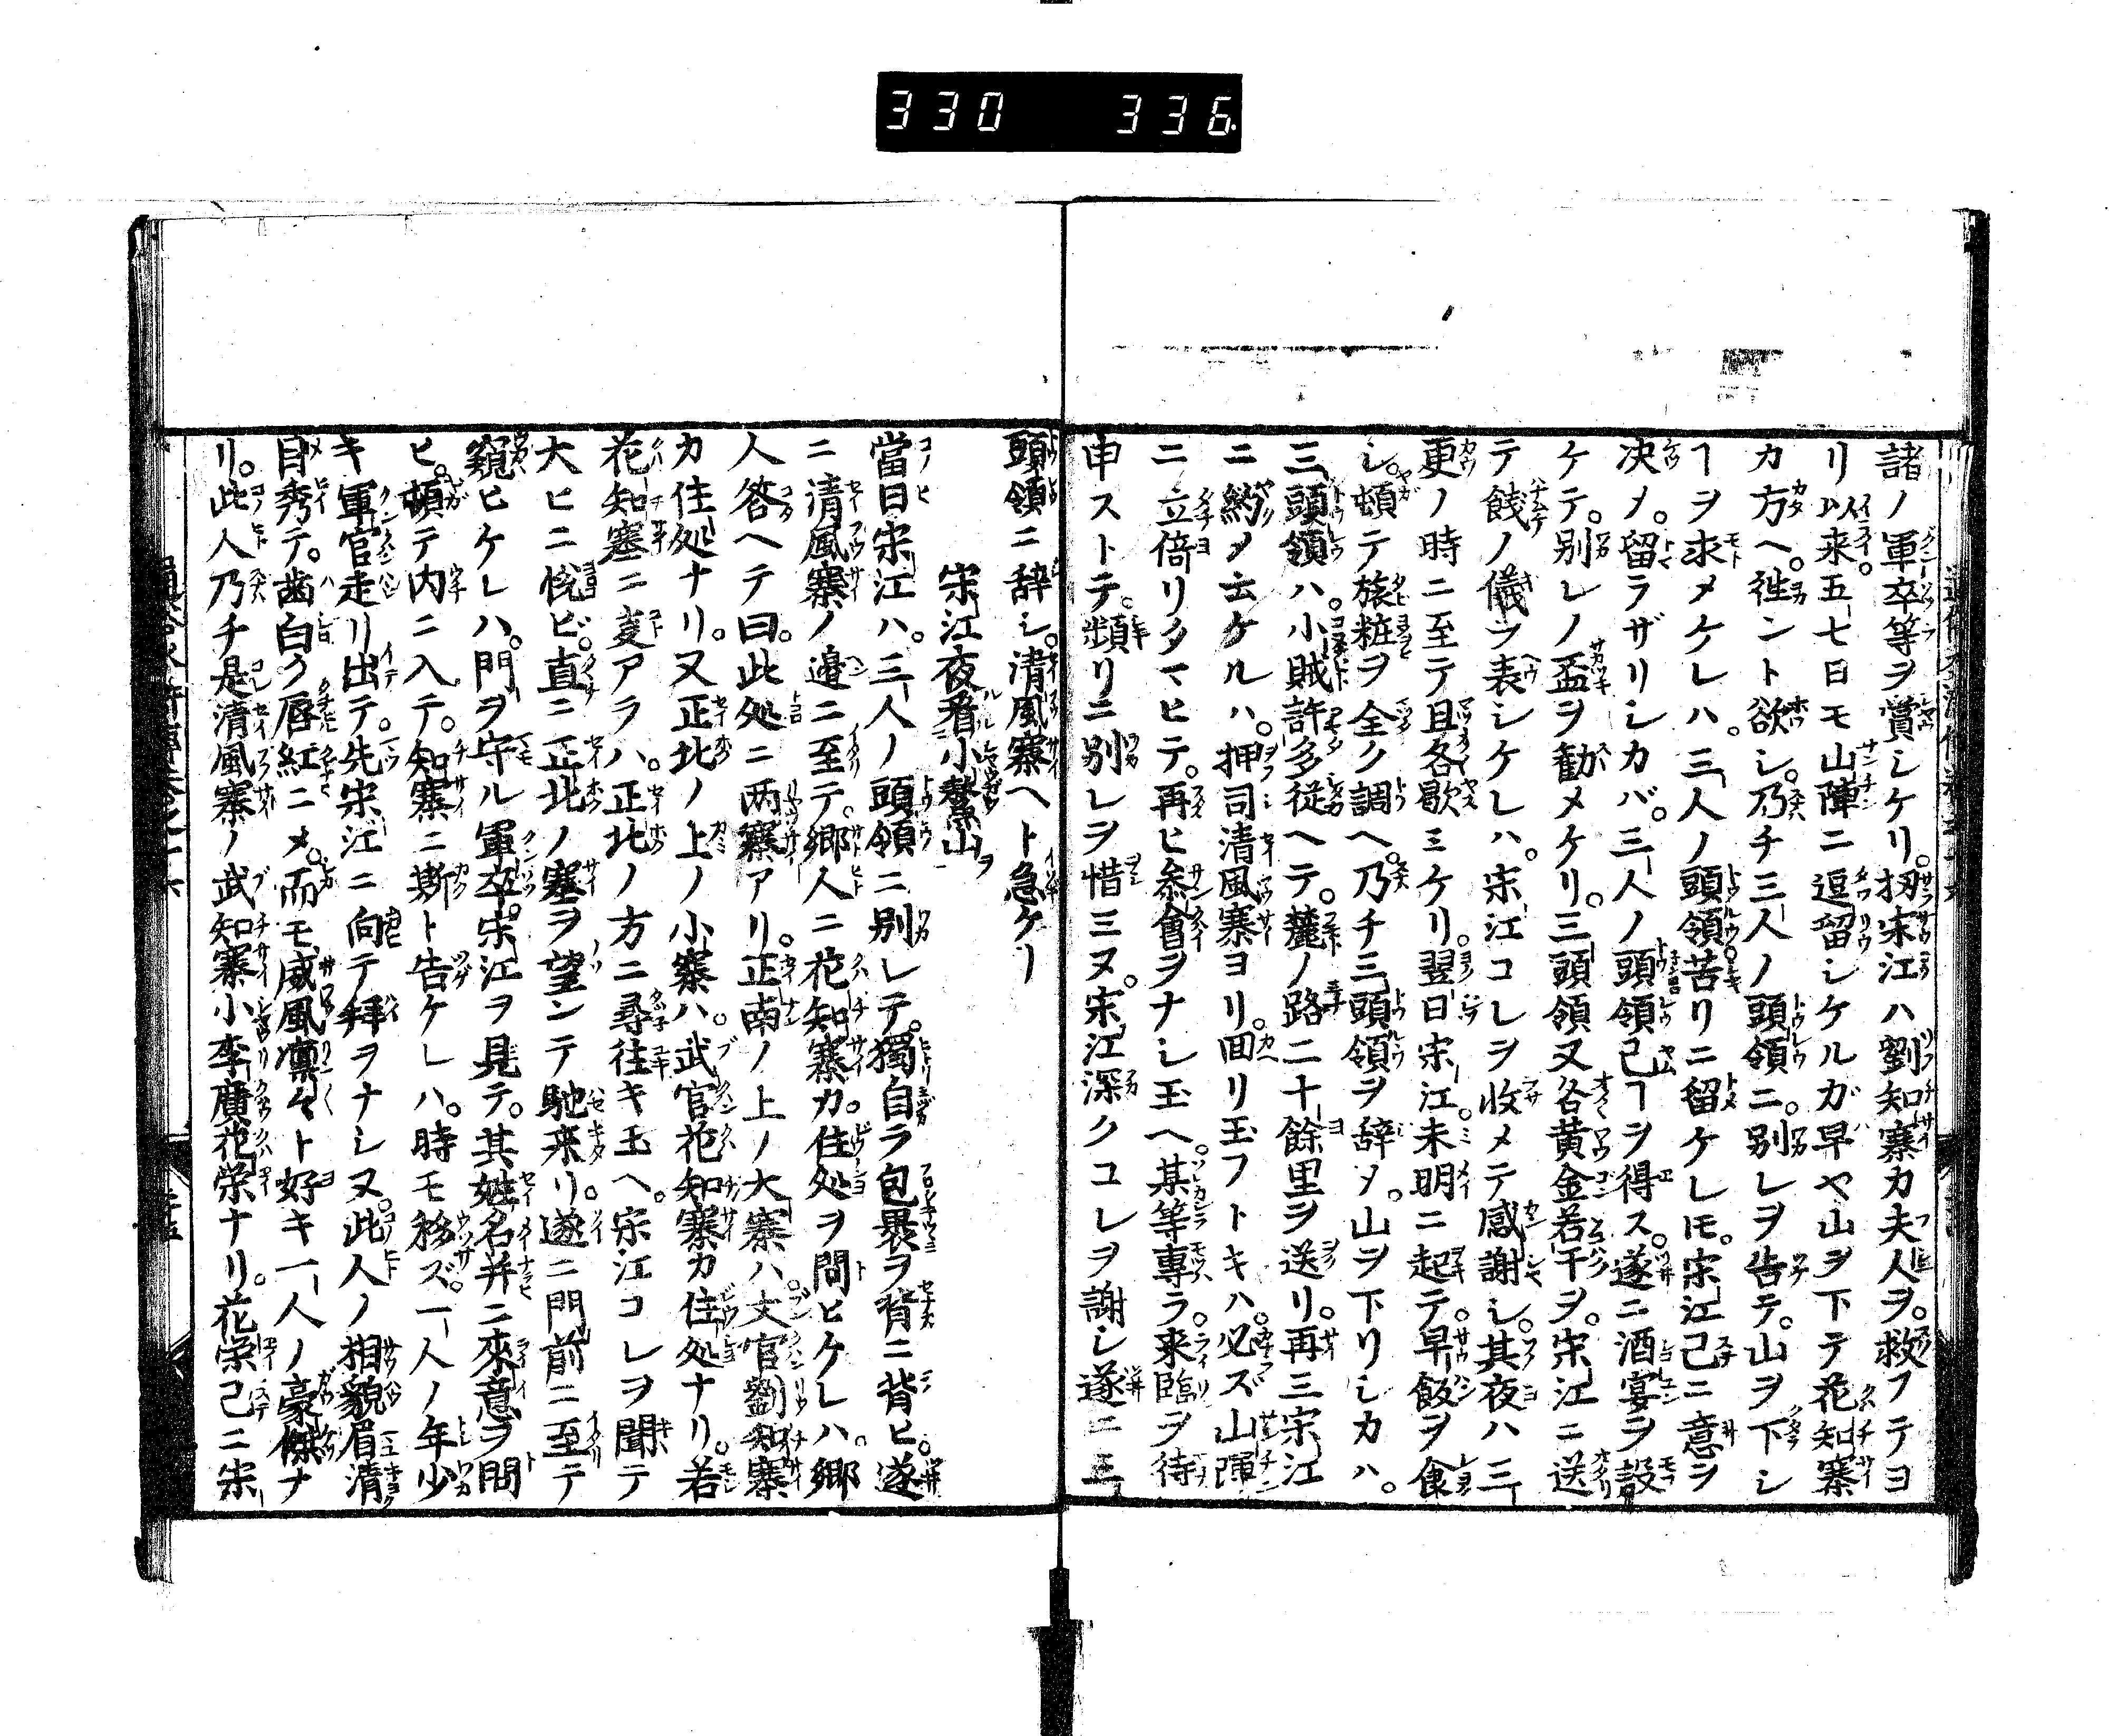 330 336.
諸ノ軍卒等ヲ賞シケリ。扨宋江ハ劉知寨カ夫人ヲ。救フテヨ
リ以来。五七日モ山陣ニ逗留シケルガ早ヤ山ヲ下テ花知寨
カ方ヘ。徃ント欲シ。乃チ三人ノ頭領ニ。別レヲ告テ。山ヲ下シ
ヿヲ求メケレハ。三人ノ頭領苦リニ留ケレ𪜈。宋江己ニ意ヲ
决メ。留ラザリシカバ。三人ノ頭領己ヿヲ得ス。遂ニ酒宴ヲ設
ケテ。別レノ盃ヲ勧メケリ。三頭領又各黄金若干ヲ。宋江ニ送
テ餞ノ儀ヲ表シケレハ。宋江コレヲ收メテ感謝シ。其夜ハ三
更ノ時ニ至テ且各歇ミケリ。翌日宋江。未明ニ起テ。早飯ヲ食
シ。頓テ旅粧ヲ全ク調ヘ。乃チ三頭領ヲ辞メ。山ヲ下リシカハ。
三頭領ハ。小賊許多従ヘテ。麓ノ路二十餘里ヲ送リ。再三宋江
ニ約メ云ケルハ。押司清風寨ヨリ。回リ玉フトキハ。必ズ山陣
ニ立倚リタマヒテ。再ヒ叅會ヲナシ玉ヘ。某等専ラ。来臨ヲ待
申ストテ。頻リニ別レヲ惜ミヌ。宋江深クコレヲ謝シ遂ニ三
頭領ニ辞シ。清風寨ヘト急ケリ
宋江夜看小鰲山ヲ
當日宋江ハ。三人ノ頭領ニ別レテ。獨自ラ包裹ヲ背ニ背ヒ。遂
ニ清風寨ノ邉ニ至テ。郷人ニ花知寨カ。住処ヲ問ヒケレハ。郷
人答ヘテ曰。此処ニ两寨アリ。正南ノ上ノ大寨ハ。文官劉知寨
カ住処ナリ。又正北ノ上ノ小寨ハ。武官花知寨カ住処ナリ。若
花知寨ニ㕝アラハ。正北ノ方ニ尋往キ玉ヘ。宋江コレヲ聞テ
大ヒニ悦ビ。直ニ正北ノ寨ヲ望ンテ馳来リ。遂ニ門前ニ至テ
窺ヒケレハ。門ヲ守ル軍卒。宋江ヲ見テ。其姓名并ニ來意ヲ問
ヒ。頓テ内ニ入テ。知寨ニ斯ト告ケレハ。時モ移ズ。一人ノ年少
キ軍官走リ出テ。先宋江ニ向テ拜ヲナシヌ。此人ノ相貌眉清
目秀テ。歯白ク唇紅ニメ。而モ威風凛々ト好キ一人ノ豪傑ナ
リ。此人乃チ是清風寨ノ武知寨小李廣花栄ナリ。花栄己ニ宋